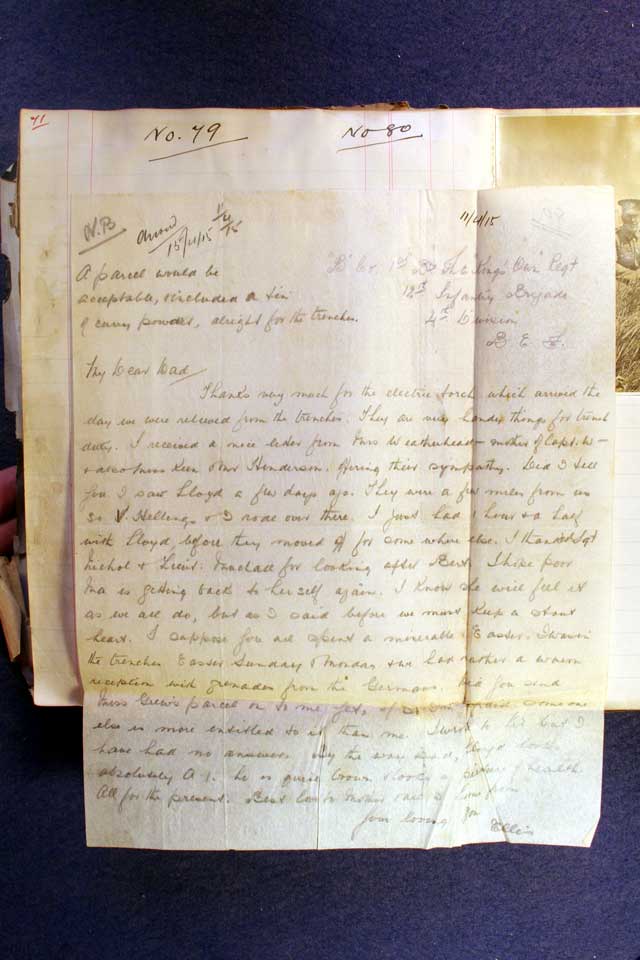 71
No. 79 No 80
N.B
15/4/15
11/4/15
A parcel would be
acceptable, & included a tin
of curry powder, alright for the trenches.
"B" Co. 1st Bn The "King's Own" Regt
12th Infantry Brigade
4th Division
B. E. F.
My Dear Dad
Thanks very much for the electric torch which arrived the
day we were relieved from the trenches. They are very handy things for trench
duty. I received a nice letter from Mrs Weatherhead - mother of Capt. W -
& also Miss Ken & Mr Henderson. Offering their sympathy. Did I tell
you I saw Lloyd a few days ago. They were a few miles from us
so V. Hellings & I rode over there. I just had 1 hour & a half
with Lloyd before they moved off for some where else. I thanked Sgt
Nichol & Lieut. for looking after Bert. I hope poor
Ma is getting back to herself again. I know she will feel it
as we all do, but as I said before we must keep a stout
heart. I suppose you all spent a miserable Easter. I was in
the trenches Easter Sunday & Monday & we had rather a warm
reception with grenades from the Germans. Did you send
Miss parcel on to me yet, if so someone
else is more entitled to it than me. I wrote to her but I
have had no answer. By the way Dad, Lloyd looks
absolutely A1. he is quite brown & looks a picture of health
All for the present. Best love to Mother from
Your loving son
Ellis